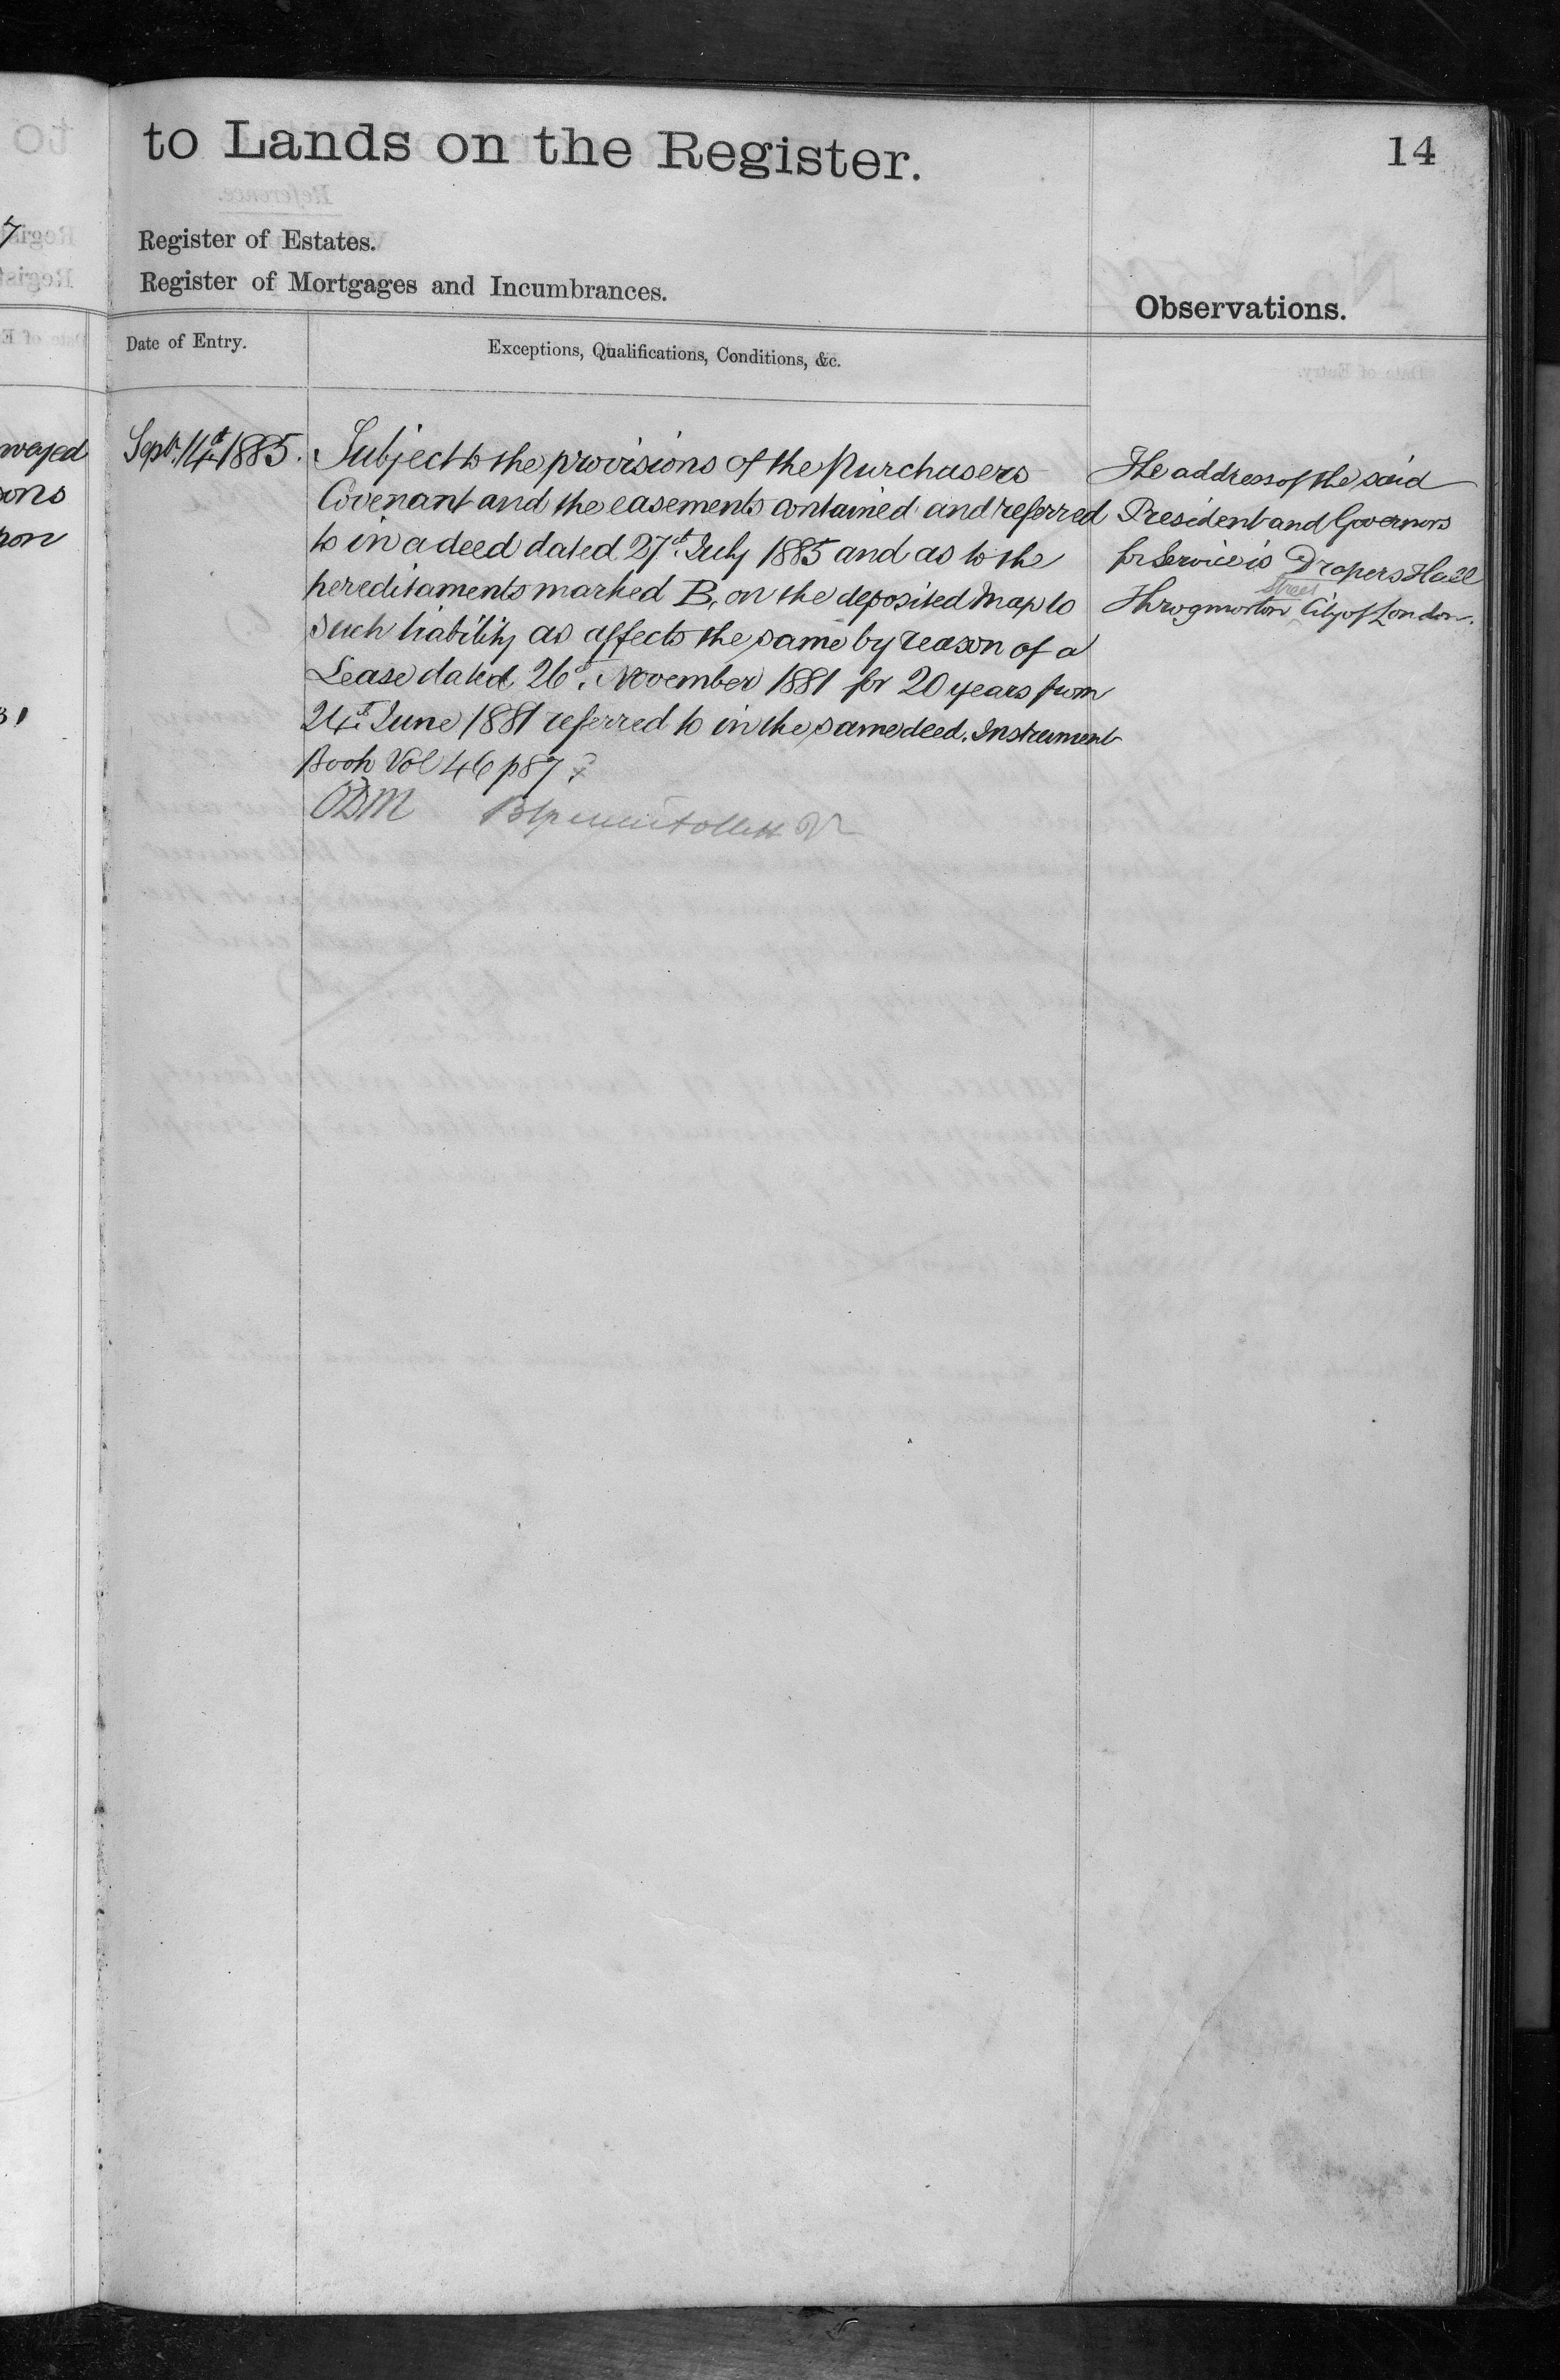 to Lands on the Register.
14
Register of Estates.
Register of Mortgages and Incumbrances.
Observations.
Date of Entry.
Exceptions, Qualifications, Conditions, &c.
Sept. 14th 1885.
Subject to the provisions of the Purchasers
Covenant and the easements contained and referred
to in a deed dated 27th July 1885 and as to the
hereditaments marked B, on the deposited Map to
such liability as affects the same by reason of a
Lease dated 26th November 1881 for 20 years from
24th June 1881 referred to in the same deed. Instrument
Book Vol 46 p 87
The address of the said
President and Governors
for Service is Drapers Hall
Street
Throgmorton City of London.